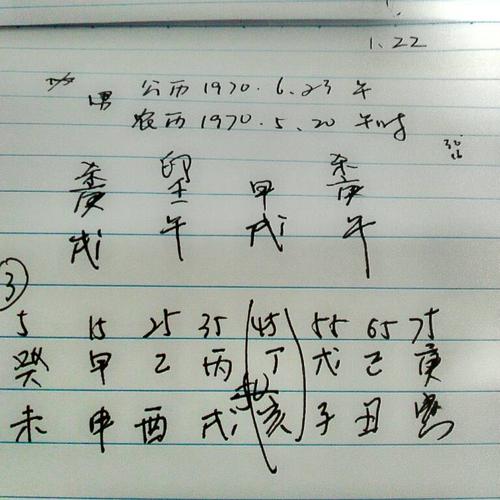 1.22
男 公历1970.6.23 午
农历1970.5.20 午时
杀 印 杀
庚 壬 甲 庚
戌 午 戌 午
③
5 15 25 35 45 55 65 75
癸 甲 乙 丙 丁 戊 己 庚
未 申 酉 戌 亥 子 丑 寅